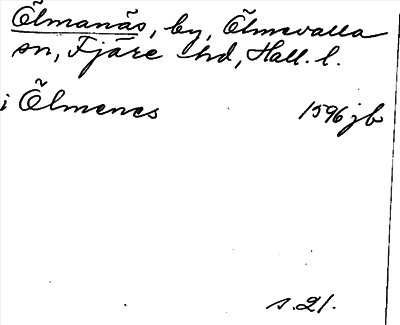 Ölmanäs, by, Ölmevalla
sn, Fjäre hd, Hall. l.
i Ölmenes 1596 jb
s. 21.